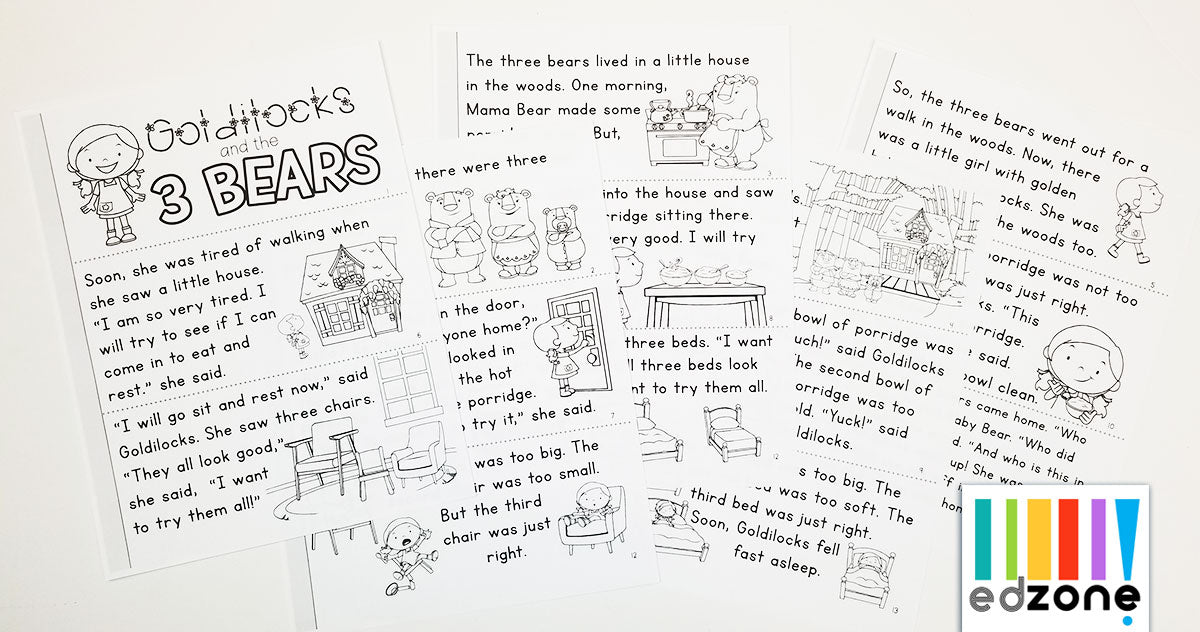 Goldilocks
and the
3 BEARS
1
Soon, she was tired of walking when
she saw a little house.
"I am so very tired. I
will try to see if I can
come in to eat and
rest." she said.
6
"I will go sit and rest now," said
Goldilocks. She saw three chairs.
"They all look good,"
she said, "I want
to try them all!"
there were three
2
n the door,
yone home?"
looked in
the hot
porridge.
try it," she said.
7
was too big. The
ir was too small.
But the third
chair was just
right.
12
The three bears lived in a little house
in the woods. One morning,
Mama Bear made some
But,
3
into the house and saw
rridge sitting there.
very good. I will try
8
three beds. "I want
ll three beds look
nt to try them all.
4
bowl of porridge was
uch!" said Goldilocks
The second bowl of
orridge was too
ld. "Yuck!" said
ldilocks.
9
s too big. The
d was too soft. The
third bed was just right.
Soon, Goldilocks fell
fast asleep.
13
So, the three bears went out for a
walk in the woods. Now, there
was a little girl with golden
ocks. She was
he woods too.
5
porridge was not too
was just right.
ks. "This
orridge.
said.
bowl clean.
10
rs came home. "Who
aby Bear. "Who did
d. "And who is this in
up! She was
edzone